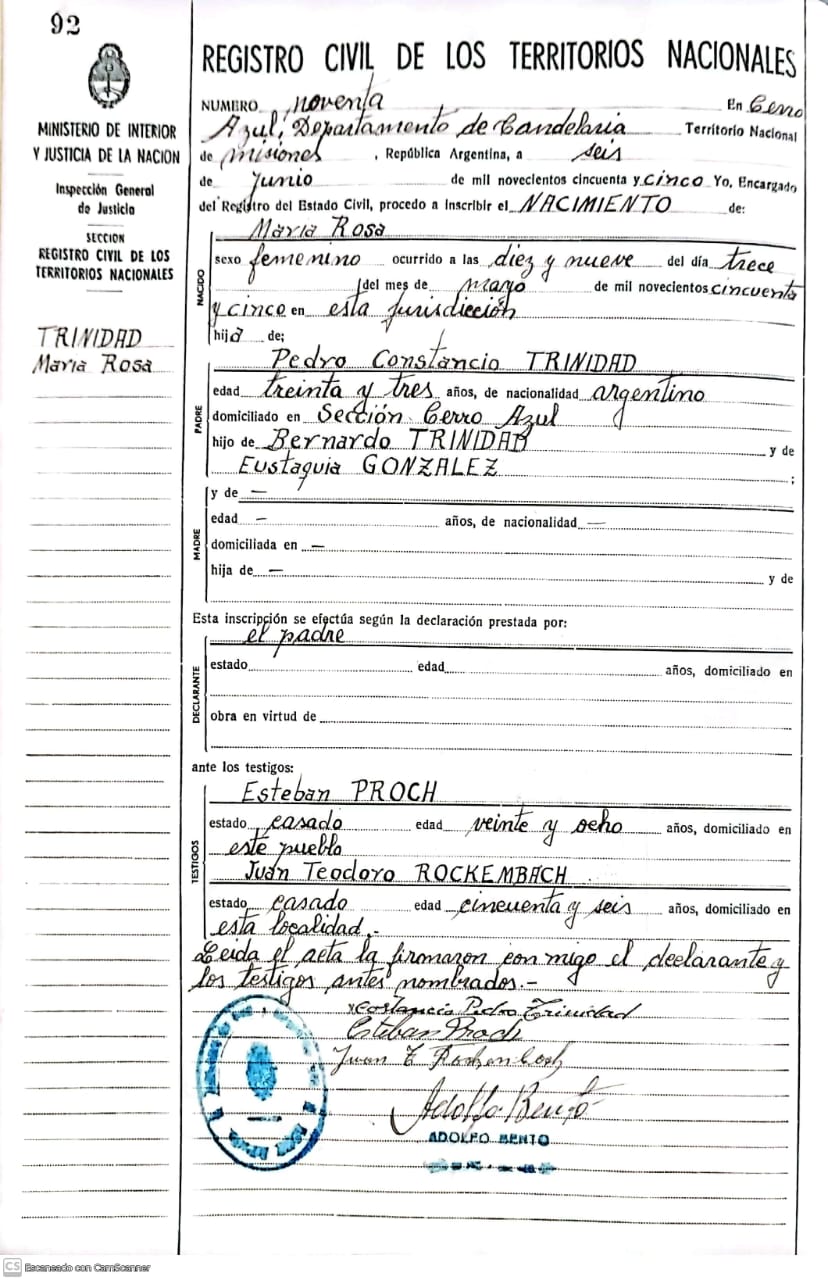 92
MINISTERIO DE INTERIOR
Y JUSTICIA DE LA NACION
Inspección General
de Justicia
SECCION
REGISTRO CIVIL DE LOS
TERRITORIOS NACIONALES
TRINIDAD
Maria Rosa
REGISTRO CIVIL DE LOS TERRITORIOS NACIONALES
NUMERO noventa En Cerro
Azul, Departamento de Candelaria Territorio Nacional
de misiones, República Argentina, a seis
de junio de mil novecientos cincuenta y cinco Yo, Encargado
del Registro del Estado Civil, procedo a inscribir el NACIMIENTO de:
NACIDO
Maria Rosa
sexo femenino ocurrido a las diez y nueve del día trece
del mes de mayo de mil novecientos cincuenta
y cinco en esta jurisdicción
hija de;
PADRE
Pedro Constancio TRINIDAD
edad treinta y tres años, de nacionalidad argentino
domiciliado en Sección Cerro Azul
hijo de Bernardo TRINIDAD y de
Eustaquia GONZALEZ ;
MADRE
y de —
edad — años, de nacionalidad —
domiciliada en —
hija de — y de
Esta inscripción se efectúa según la declaración prestada por:
DECLARANTE
el padre
estado edad años, domiciliado en
obra en virtud de
ante los testigos:
TESTIGOS
Esteban PROCH
estado casado edad veinte y ocho años, domiciliado en
este pueblo
Juan Teodoro ROCKEMBACH
estado casado edad cincuenta y seis años, domiciliado en
esta localidad.-
Leida el acta la firmaron con migo el declarante y
los testigos antes nombrados.-
Costancio Pedro Trinidad
Esteban Proch
Juan T Rockenbach
Adolfo Bento
ADOLFO BENTO
CS Escaneado con CamScanner